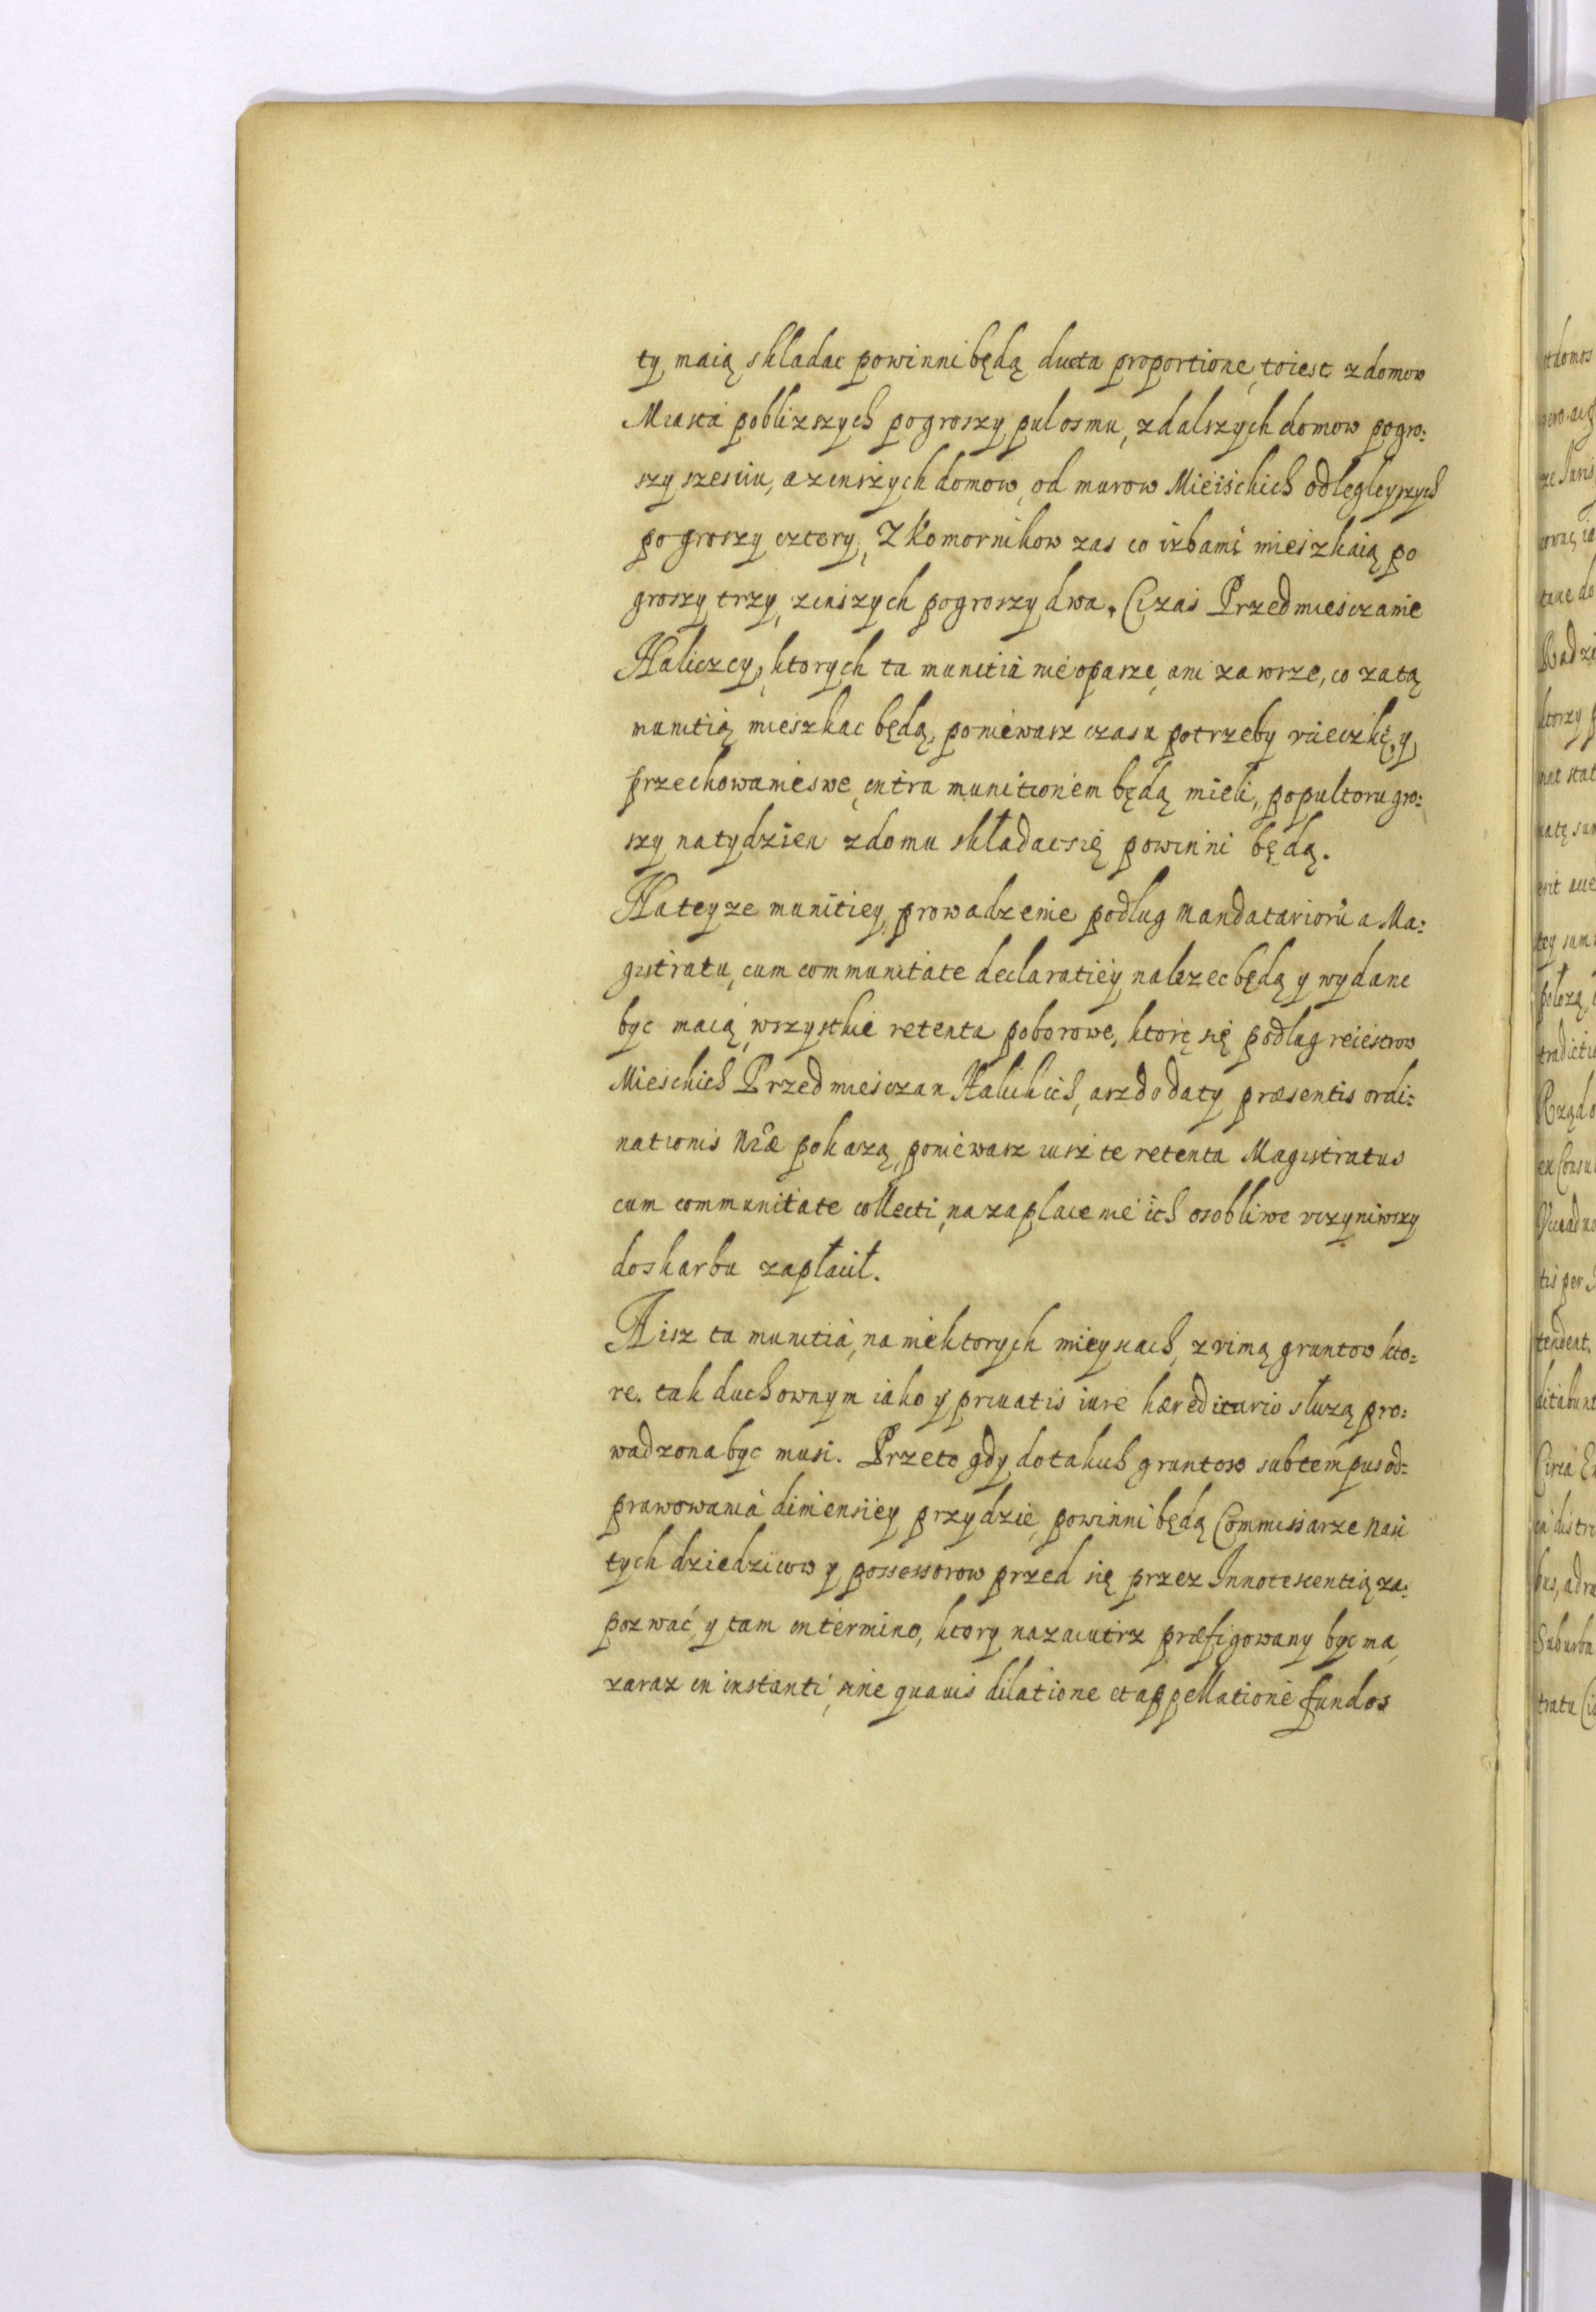 ty maią skladac powinni będą ducta proportione, toiest z domow
Miasta poblizszych po groszy pul osmu, z dalszych domow po gro:
szy szesciu, a z inszych domow, od murow Mieisckich odlegleyszych
po groszy cztery, Z komornikow zas co izbami mieszkaią po
groszy trzy, z inszych po groszy dwa. Ci zas Przedmiesczanie
Haliczcy, ktorych ta munitia nie opasze, ani zawrze, co za tą
munitią mieszkac będą, poniewasz czasu potrzeby vcieczkę, y
przechowanie swe, intra munitionem będą mieli, po pultoru gro:
szy na tydzien z domu składac się powinni będą.
Na teyze munitiey, prowadzenie podlug Mandatariorũ a Ma:
gistratu, cum communitate declaratiey nalezec będą y wydane
byc maią, wszystkie retenta poborowe, ktore się podlug reiestrow
Miesckich Przedmiesczan Halickich, asz do daty præsentis ordi:
nationis Nræ pokazą, poniewasz iusz te retenta Magistratus
cum communitate collecti, na zaplacenie ich osobliwe vczyniwszy
do skarbu zapłacił.
A isz ta munitia, na niektorych mieyscach, z rimą gruntow kto:
re. tak duchownym iako y priuatis iure hæreditario słuzą pro:
wadzona byc musi. Przeto gdy do takich gruntow sub tempus od:
prawowania dimensiey przydzie, powinni będą Commissarze Nasi
tych dziedzicow y possessorow przed się przez Innotescentią za:
pozwać, y tam in termino, ktory nazaiutrz præfigowany byc ma,
zaraz in instanti, sine quauis dilatione et appellatione fundos